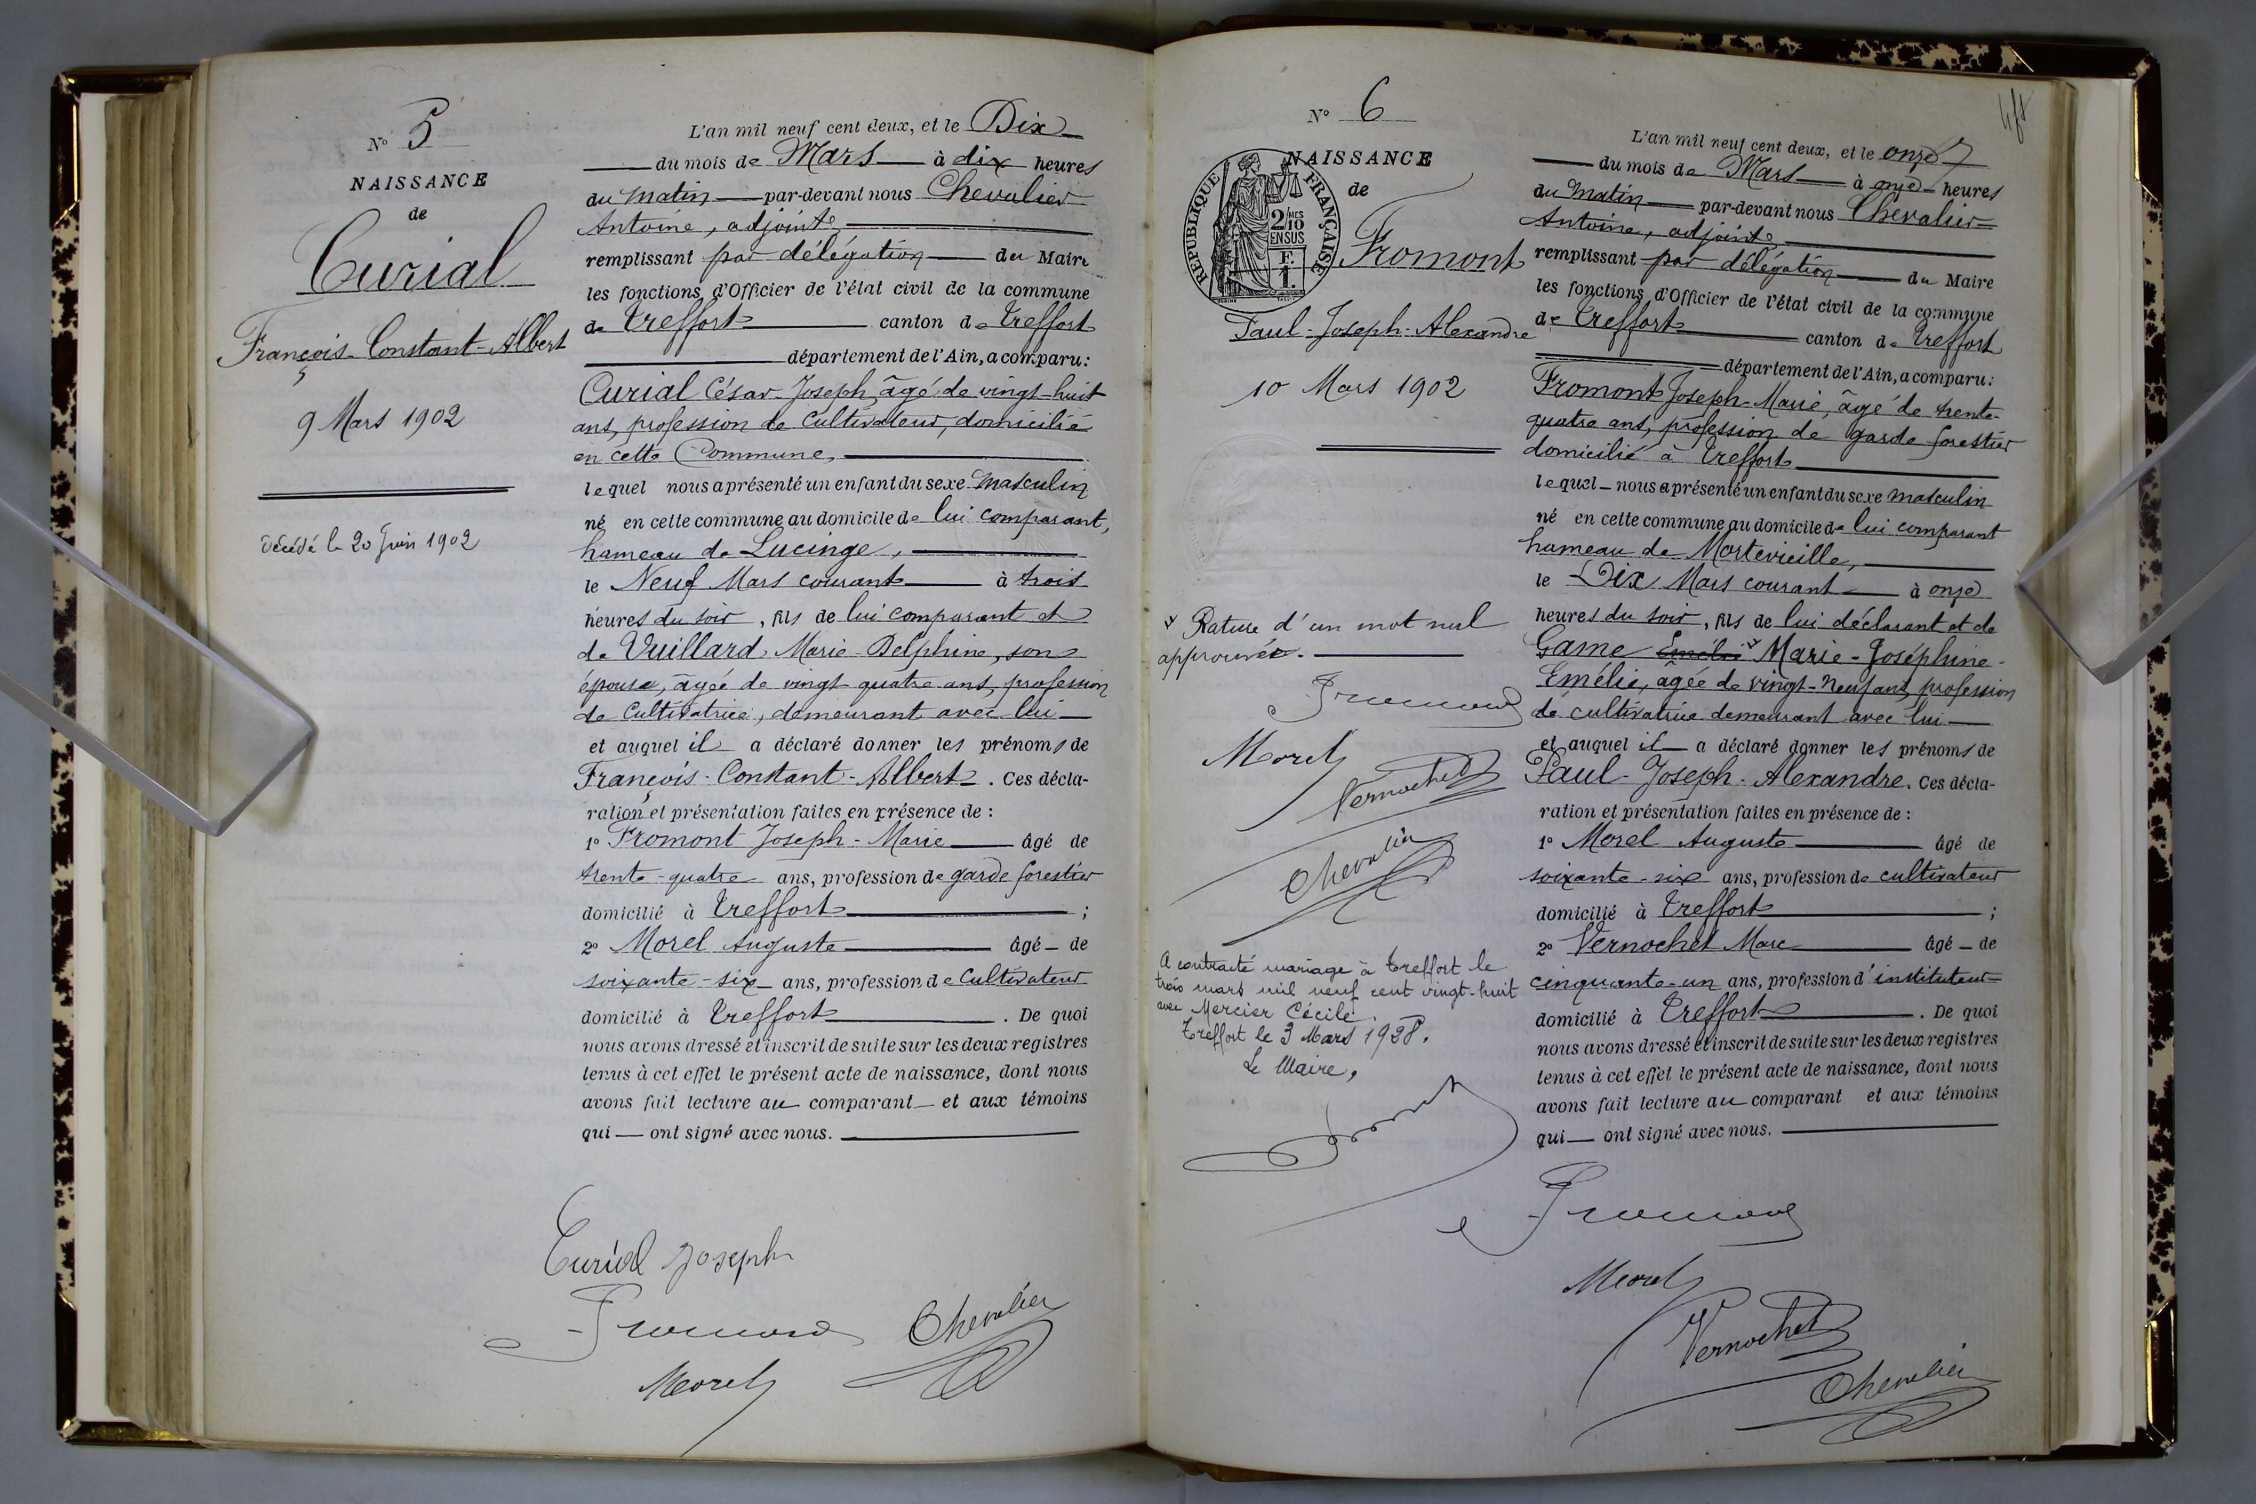 Nº 5
NAISSANCE
de
Curial
François-Constant-Albert
9 Mars 1902
décédé le 20 Juin 1902
L'an mil neuf cent deux, et le Dix
du mois de Mars à dix heures
du matin par-devant nous Chevalier
Antoine, adjoint,
remplissant par délégation du Maire
les fonctions d'Officier de l'état civil de la commune
de Treffort canton de Treffort
département de l'Ain, a comparu:
Curial César-Joseph, âgé de vingt-huit
ans, profession de Cultivateur, domicilié
en cette Commune,
lequel nous a présenté un enfant du sexe masculin
né en cette commune au domicile de lui comparant,
hameau de Lucinge,
le Neuf Mars courant à trois
heures du soir, fils de lui comparant et
de Vuillard Marie-Delphine, son
épouse, âgée de vingt quatre ans, profession
de Cultivatrice, demeurant avec lui
et auquel il a déclaré donner les prénoms de
François-Constant-Albert. Ces décla-
ration et présentation faites en présence de :
1º Fromont Joseph-Marie âgé de
trente-quatre ans, profession de garde forestier
domicilié à Treffort ;
2º Morel Auguste âgé de
soixante-six ans, profession de Cultivateur
domicilié à Treffort . De quoi
nous avons dressé et inscrit de suite sur les deux registres
tenus à cet effet le présent acte de naissance, dont nous
avons fait lecture au comparant et aux témoins
qui ont signé avec nous.
Curial Joseph
Fromont Chevalier
Morel
Nº 6
NAISSANCE
de
REPUBLIQUE FRANÇAISE
2/10 MES
EN SUS
F.
1.
Fromont
Paul-Joseph-Alexandre
10 Mars 1902
x Rature d'un mot nul
approuvée.
Fromont
Morel
Vernochet
Chevalier
A contracté mariage à Treffort le
trois mars mil neuf cent vingt-huit
avec Mercier Cécile.
Treffort le 3 Mars 1928.
Le Maire,
L'an mil neuf cent deux, et le onze
du mois de Mars à onze heures
du matin par-devant nous Chevalier
Antoine, adjoint,
remplissant par délégation du Maire
les fonctions d'Officier de l'état civil de la commune
de Treffort canton de Treffort
département de l'Ain, a comparu:
Fromont Joseph-Marie, âgé de trente-
quatre ans, profession de garde forestier
domicilié à Treffort
lequel nous a présenté un enfant du sexe masculin
né en cette commune au domicile de lui comparant
hameau de Mortevieille,
le Dix Mars courant à onze
heures du soir, fils de lui déclarant et de
Game Emélie x Marie-Joséphine-
Emélie, âgée de vingt-neuf ans, profession
de cultivatrice demeurant avec lui
et auquel il a déclaré donner les prénoms de
Paul-Joseph-Alexandre. Ces décla-
ration et présentation faites en présence de :
1º Morel Auguste âgé de
soixante-six ans, profession de cultivateur
domicilié à Treffort ;
2º Vernochet Marc âgé de
cinquante-un ans, profession d'instituteur
domicilié à Treffort . De quoi
nous avons dressé et inscrit de suite sur les deux registres
tenus à cet effet le présent acte de naissance, dont nous
avons fait lecture au comparant et aux témoins
qui ont signé avec nous.
Fromont
Morel
Vernochet
Chevalier